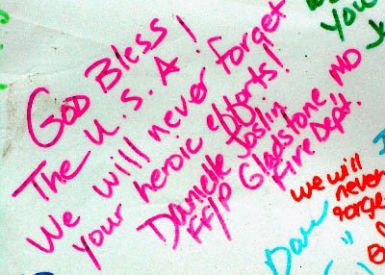 God Bless
The U.S.A!
We will never forget
your heroic efforts!
Danielle Joslin
FF/P Gladstone MO
Fire Dept.
you
we will
never
Dave